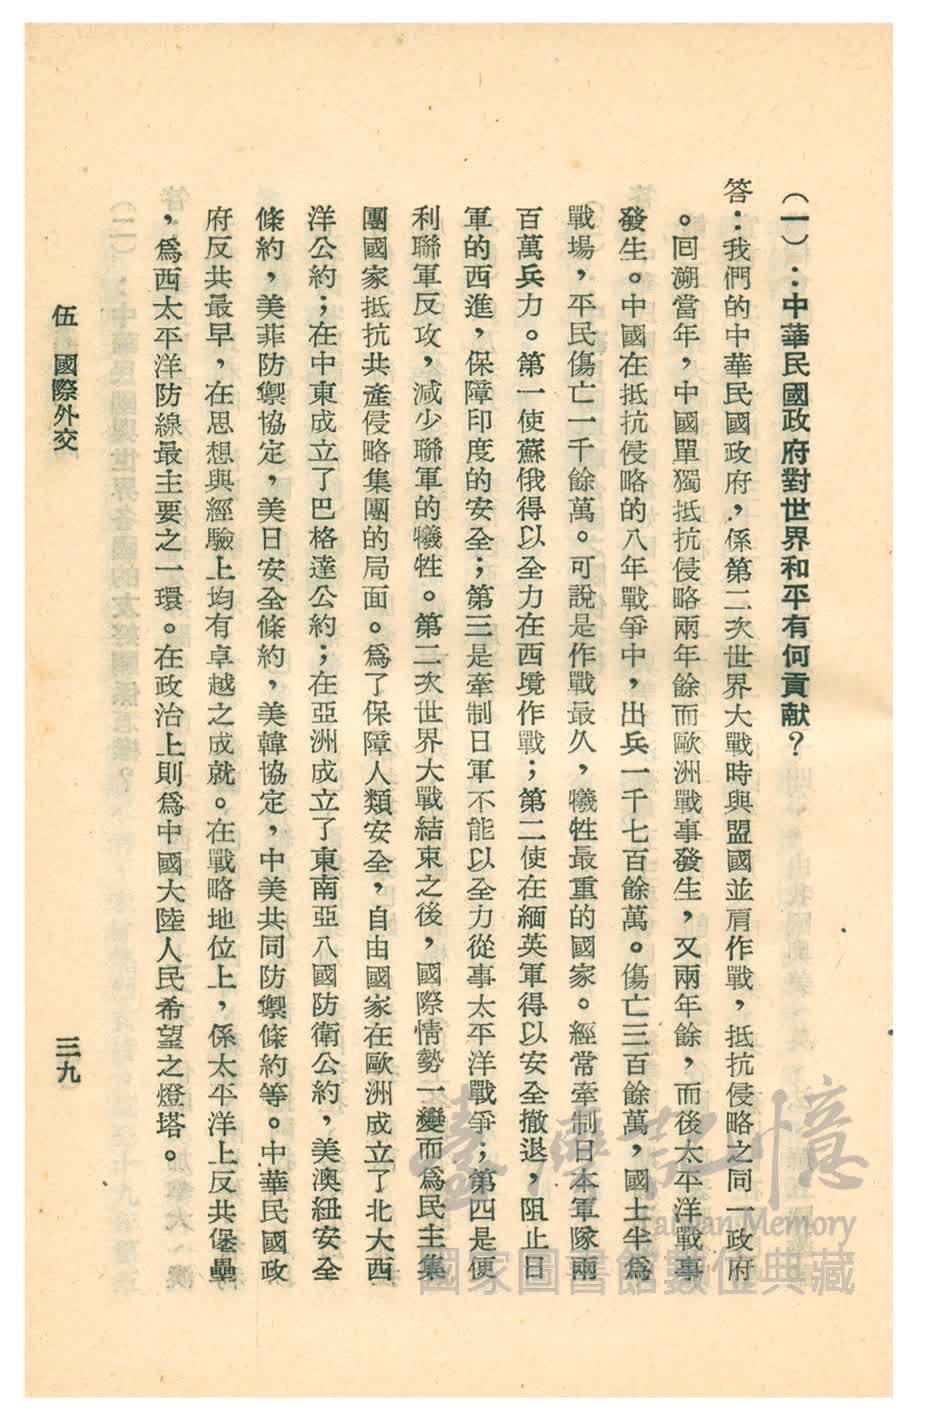 （一）：中華民國政府對世界和平有何貢献？
答：我們的中華民國政府，係第二次世界大戰時與盟國並肩作戰，抵抗侵略之同一政府
。囘溯當年，中國單獨抵抗侵略兩年餘而歐洲戰事發生，又兩年餘，而後太平洋戰事
發生。中國在抵抗侵略的八年戰爭中，出兵一千七百餘萬。傷亡三百餘萬，國土半爲
戰場，平民傷亡一千餘萬。可說是作戰最久，犧牲最重的國家。經常牽制日本軍隊兩
百萬兵力。第一使蘇俄得以全力在西境作戰；第二使在緬英軍得以安全撤退，阻止日
軍的西進，保障印度的安全；第三是牽制日軍不能以全力從事太平洋戰爭；第四是便
利聯軍反攻，减少聯軍的犧牲。第二次世界大戰結束之後，國際情勢一變而爲民主集
團國家抵抗共產侵略集團的局面。爲了保障人類安全，自由國家在歐洲成立了北大西
洋公約；在中東成立了巴格達公約；在亞洲成立了東南亞八國防衛公約，美澳紐安全
條約，美菲防禦協定，美日安全條約，美韓協定，中美共同防禦條約等。中華民國政
府反共最早，在思想與經驗上均有卓越之成就。在戰略地位上，係太平洋上反共堡壘
，爲西太平洋防線最主要之一環。在政治上則爲中國大陸人民希望之燈塔。
伍　國際外交
三九
臺灣記憶
Taiwan Memory
國家圖書館數位典藏